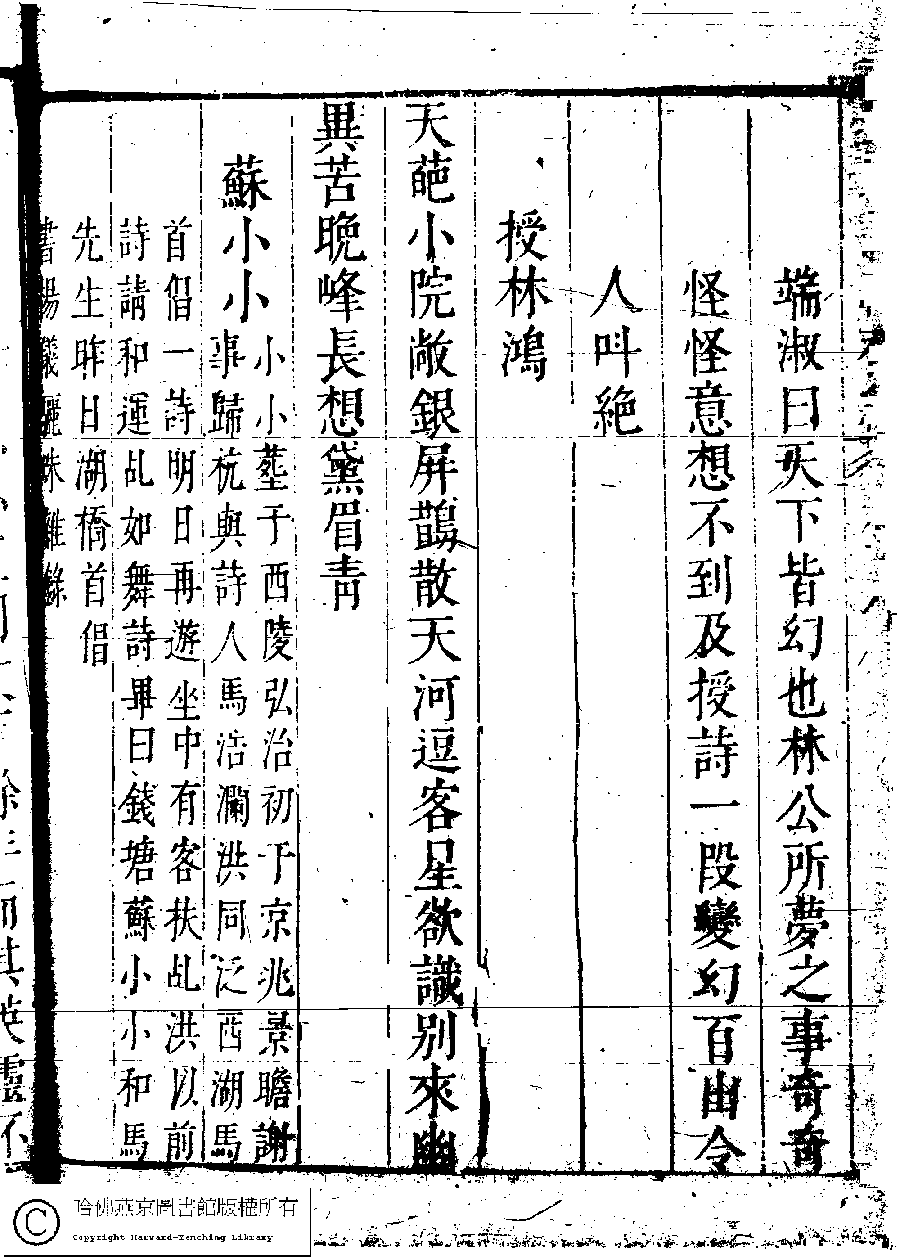 端淑曰天下皆幻也林公所夢之事奇奇
怪怪意想不到及授詩一段變幻百出令
人叫絶
授林鴻
天葩小院敞銀屏鵲散天河逗客星欲識别來幽
異苦晚峰長想黛眉青
蘇小小
小小墓于西陵弘治初于京兆景瞻謝
事歸杭與詩人馬浩瀾洪同泛西湖馬
首倡一詩明日再遊坐中有客扶乩洪以前
詩請和運乩如舞詩畢曰錢塘蘇小小和馬
先生昨日湖橋首倡
書楊儀驪珠雜錄
哈佛燕京圖書館版權所有
Copyright Harvard-Yenching Library